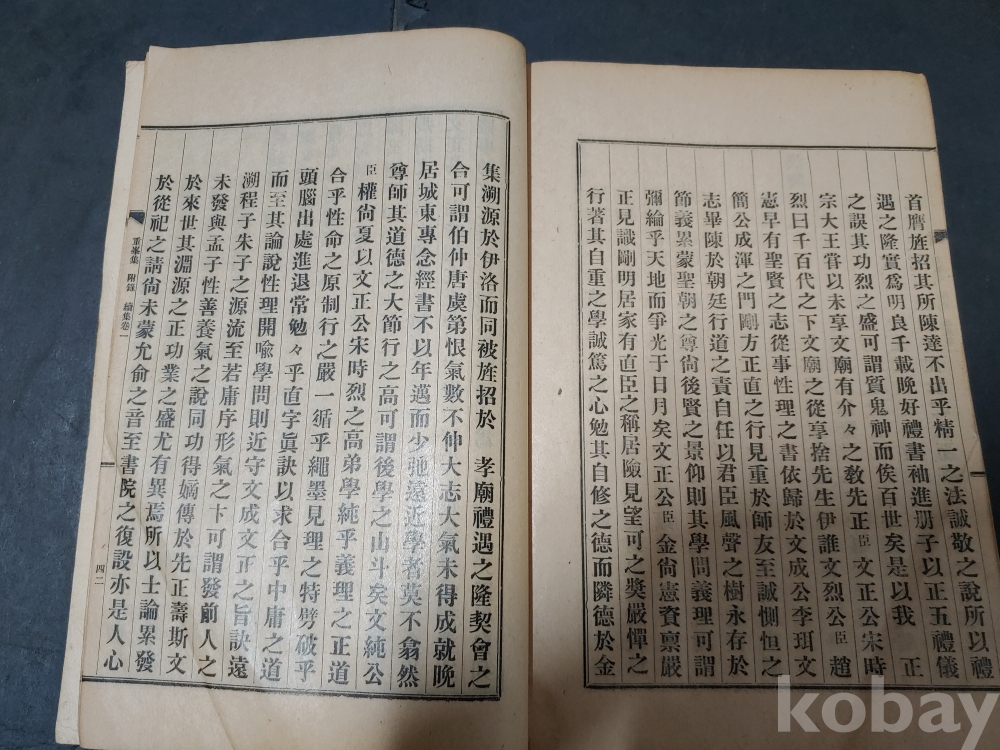 首膺旌招其所陳達不出乎精一之法誠敬之說所以禮
遇之隆實爲明良千載晚好禮書袖進册子以正五禮儀
之誤其功烈之盛可謂質鬼神而俟百世矣是以我 正
宗大王嘗以未享文廟有介々之敎先正臣文正公宋時
烈曰千百代之下文廟之從享捨先生伊誰文烈公臣趙
憲早有聖賢之志從事性理之書依歸於文成公李珥文
簡公成渾之門剛方正直之行見重於師友至誠惻怛之
志畢陳於朝廷行道之責自任以君臣風聲之樹永存於
節義累蒙聖朝之尊尙後賢之景仰則其學問義理可謂
彌綸乎天地而爭光于日月矣文正公臣金尙憲資禀嚴
正見識剛明居家有直臣之稱居險見望可之奬嚴憚之
行著其自重之學誠篤之心勉其自修之德而隣德於金
集溯源於伊洛而同被旌招於 孝廟禮遇之隆契會之
合可謂伯仲唐虞第恨氣數不仲大志大氣未得成就晚
居城東專念經書不以年邁而少弛遠近學者莫不翕然
尊師其道德之大節行之高可謂後學之山斗矣文純公
臣權尙夏以文正公宋時烈之高弟學純乎義理之正道
合乎性命之原制行之嚴一循乎繩墨見理之特劈破乎
頭腦出處進退常勉々乎直字眞訣以求合乎中庸之道
而至其論說性理開喩學問則近守文成文正之旨訣遠
溯程子朱子之源流至若庸序形氣之卞可謂發前人之
未發與孟子性善養氣之說同功得嫡傳於先正壽斯文
於來世其淵源之正功業之盛尤有異焉所以士論累發
於從祀之請尙未蒙允俞之音至書院之復設亦是人心
重峯集 附錄 續集卷一
四二
kobay